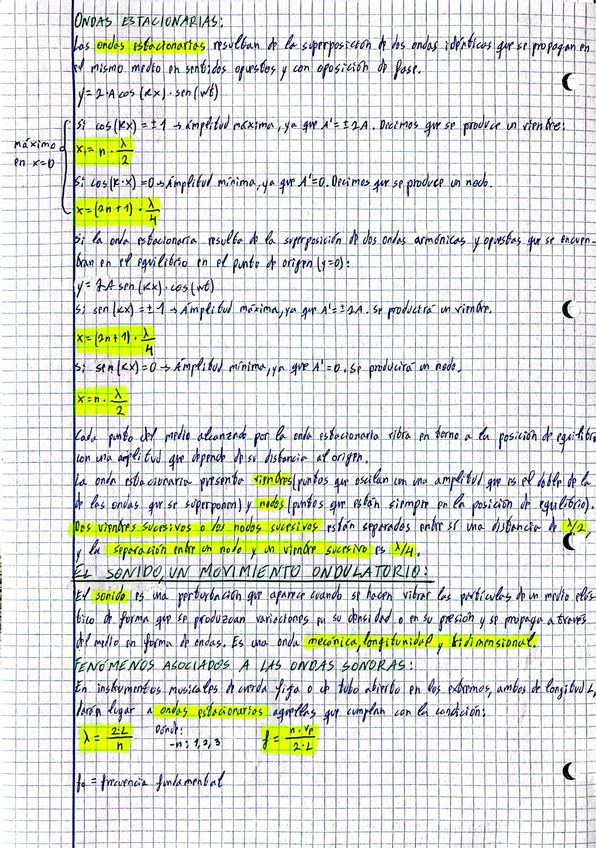 ONDAS ESTACIONARIAS:
Las ondas estacionarias resultan de la superposición de dos ondas idénticas que se propagan en
el mismo medio en sentidos opuestos y con oposición de fase.
y=2·A cos (kx)·sen(wt)
Si cos(kx)=±1 → Amplitud máxima, ya que A'=±2A. Decimos que se produce un vientre:
máximo
en x=0
x₁=n·λ/2
Si cos(k·x)=0 → Amplitud mínima, ya que A'=0. Decimos que se produce un nodo.
x=(2n+1)·λ/4
Si la onda estacionaria resulta de la superposición de dos ondas armónicas y opuestas que se encuen-
tran en el equilibrio en el punto de origen (y=0):
y=2A sen(kx)·cos(wt)
Si sen(kx)=±1 → Amplitud máxima, ya que A'=±2A. Se producirá un vientre.
x=(2n+1)·λ/4
Si sen(kx)=0 → Amplitud mínima, ya que A'=0. Se producirá un nodo.
x=n·λ/2
Cada punto del medio alcanzado por la onda estacionaria vibra en torno a la posición de equilibrio
con una amplitud que depende de su distancia al origen.
La onda estacionaria presenta vientres (puntos que oscilan con una amplitud que es el doble de la
de las ondas que se superponen) y nodos (puntos que están siempre en la posición de equilibrio).
Dos vientres sucesivos o dos nodos sucesivos están separados entre sí una distancia de λ/2,
y la separación entre un nodo y un vientre sucesivo es λ/4.
EL SONIDO, UN MOVIMIENTO ONDULATORIO:
El sonido es una perturbación que aparece cuando se hacen vibrar las partículas de un medio elás-
tico de forma que se produzcan variaciones en su densidad o en su presión y se propaga a través
del medio en forma de ondas. Es una onda mecánica, longitudinal y tridimensional.
FENÓMENOS ASOCIADOS A LAS ONDAS SONORAS:
En instrumentos musicales de cuerda fija o de tubo abierto en los extremos, ambos de longitud L,
darán lugar a ondas estacionarias aquellas que cumplan con la condición:
λ=2·L/n Dónde: f=n·vp/2·L
-n: 1, 2, 3
f₀ = frecuencia fundamental